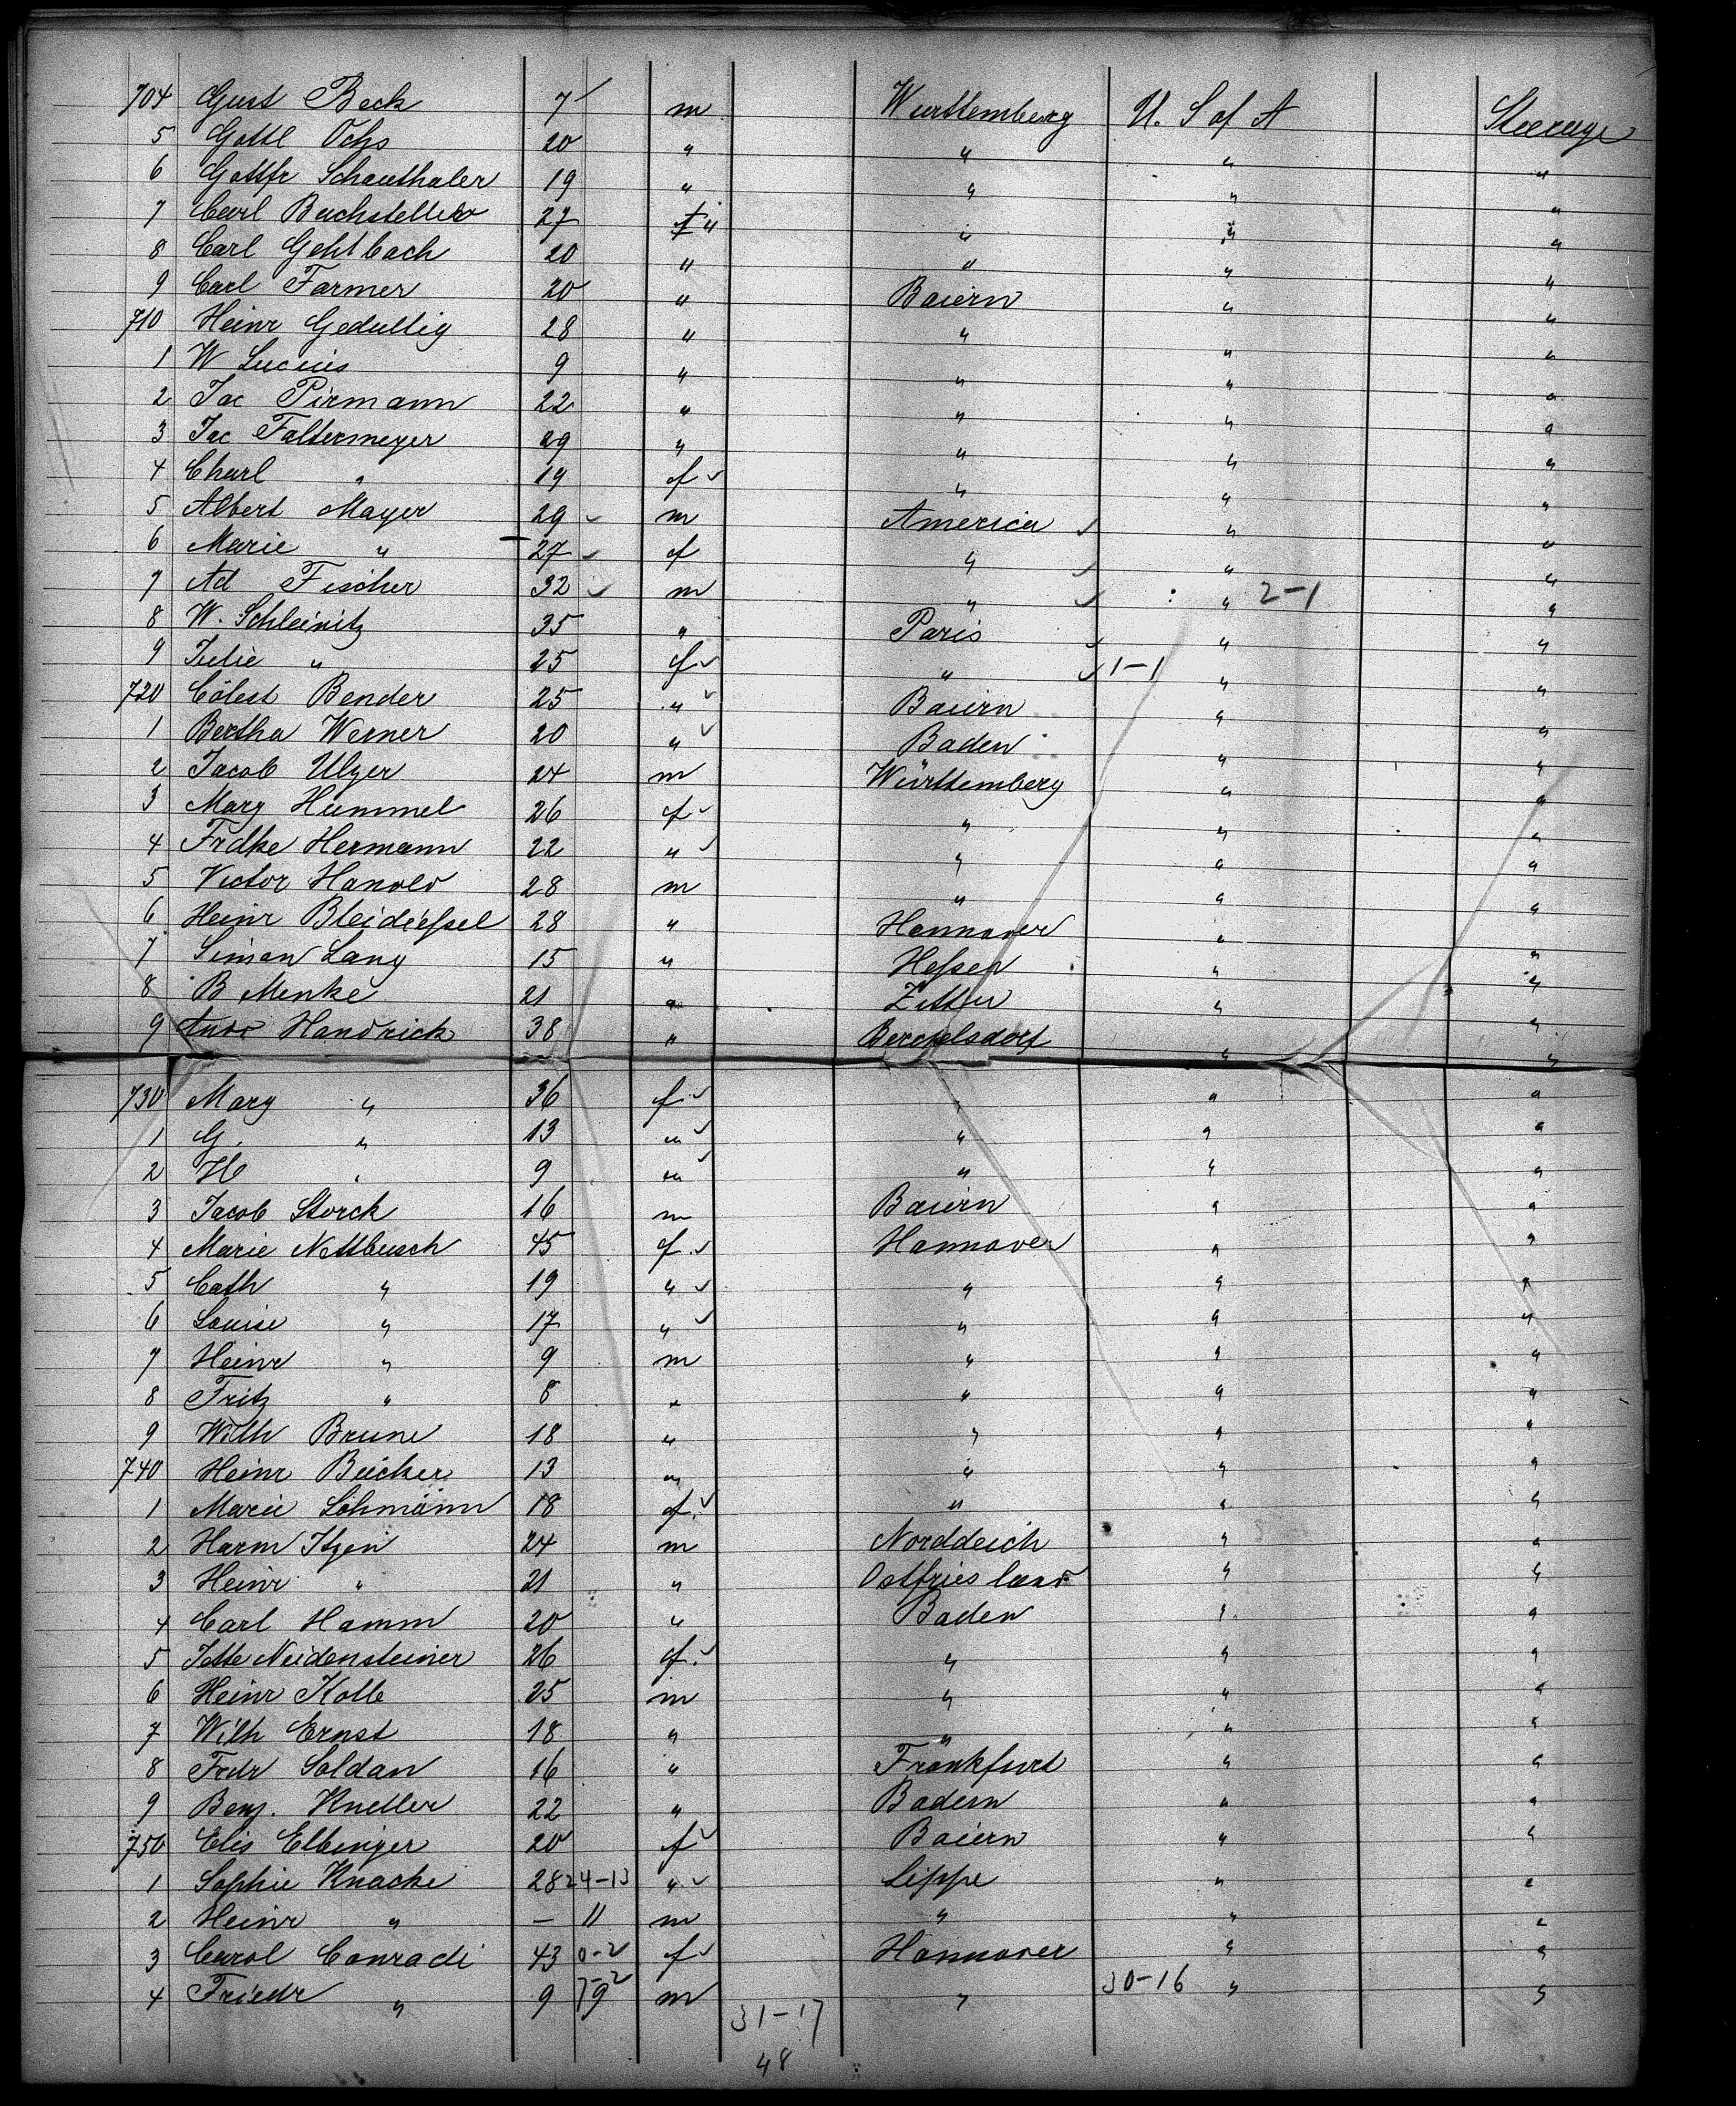 704 Gust Beck 7 m Wurttemberg U. S of A Steerage
5 Gottl Ochs 20 " " " "
6 Gottfr Schauthaler 19 " " " "
7 Carl Bachsteller 27 " " " "
8 Carl Gehlbach 20 " " " "
9 Carl Farmer 20 " Baiern " "
710 Heinr Gedultig 28 " " " "
1 W Lucius 9 " " " "
2 Jac Pirmann 22 " " " "
3 Jac Faltermeyer 29 " " " "
4 Charl " 19 f " " "
5 Albert Mayer 29 m America " "
6 Marie " 27 f " " "
7 Ad Fischer 32 m " " 2-1 "
8 W. Schleinitz 35 " Paris " "
9 Julie " 25 f " 1-1 " "
720 Cölest Bender 25 " Baiern " "
1 Bertha Werner 20 " Baden " "
2 Jacob Ulzer 24 m Württemberg " "
3 Marg Hummel 26 f " " "
4 Frdke Hermann 22 " " " "
5 Victor Hanold 28 m " " "
6 Heinr Bleidießel 28 " Hannover " "
7 Simon Lang 15 " Heßen " "
8 B Menke 21 " " "
9 Handrick 38 " " "
730 Marg " 36 f " " "
1 G. " 13 " " " "
2 H " 9 " " " "
3 Jacob Storck 16 m Baiern " "
4 Marie Nettbusch 45 f Hannover " "
5 Cath " 19 " " " "
6 Louise " 17 " " " "
7 Heinr " 9 m " " "
8 Fritz " 8 " " " "
9 Wilh Brune 18 " " " "
740 Heinr Bücker 13 " " " "
1 Marie Löhmann 18 f " " "
2 Harm Itzen 24 m Norddeich " "
3 Heinr " 21 " Ostfriesland " "
4 Carl Hamm 20 " Baden " "
5 Jette Neidensteiner 26 f " " "
6 Heinr Kolb 25 m " " "
7 Wilh Ernst 18 " " " "
8 Frdr Soldan 16 " Frankfurt " "
9 Benj. Kneller 22 " Badern " "
750 Elis Elbinger 20 f Baiern " "
1 Sophie Knacke 28 24-13 " Lippe " "
2 Heinr " - 11 m " " "
3 Carol Conradi 43 0-2 f Hannover " "
4 Friedr " 9 m " 30-16 " "
31-17
48